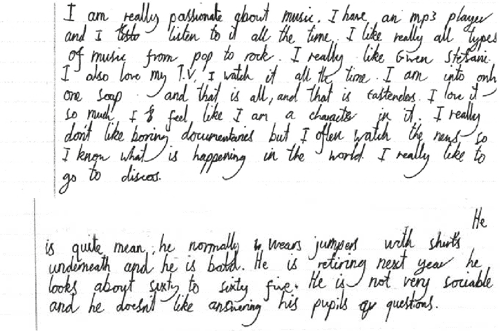 I am really passionate about music. I have an mp3 player
and I listen to it all the time. I like really all types
of music from pop to rock. I really like Gwen Stefani.
I also love my T.V. I watch it all the time. I am into only
one soap and that is all, and that is Eastenders. I love it
so much, I feel like I am a character in it. I really
don't like boring documentaries but I often watch the news so
I know what is happening in the world. I really like to
go to discos.
He
is quite mean, he normally wears jumpers with shirts
underneath and he is bald. He is retiring next year he
looks about sixty to sixty five. He is not very sociable
and he doesn't like answering his pupils questions.